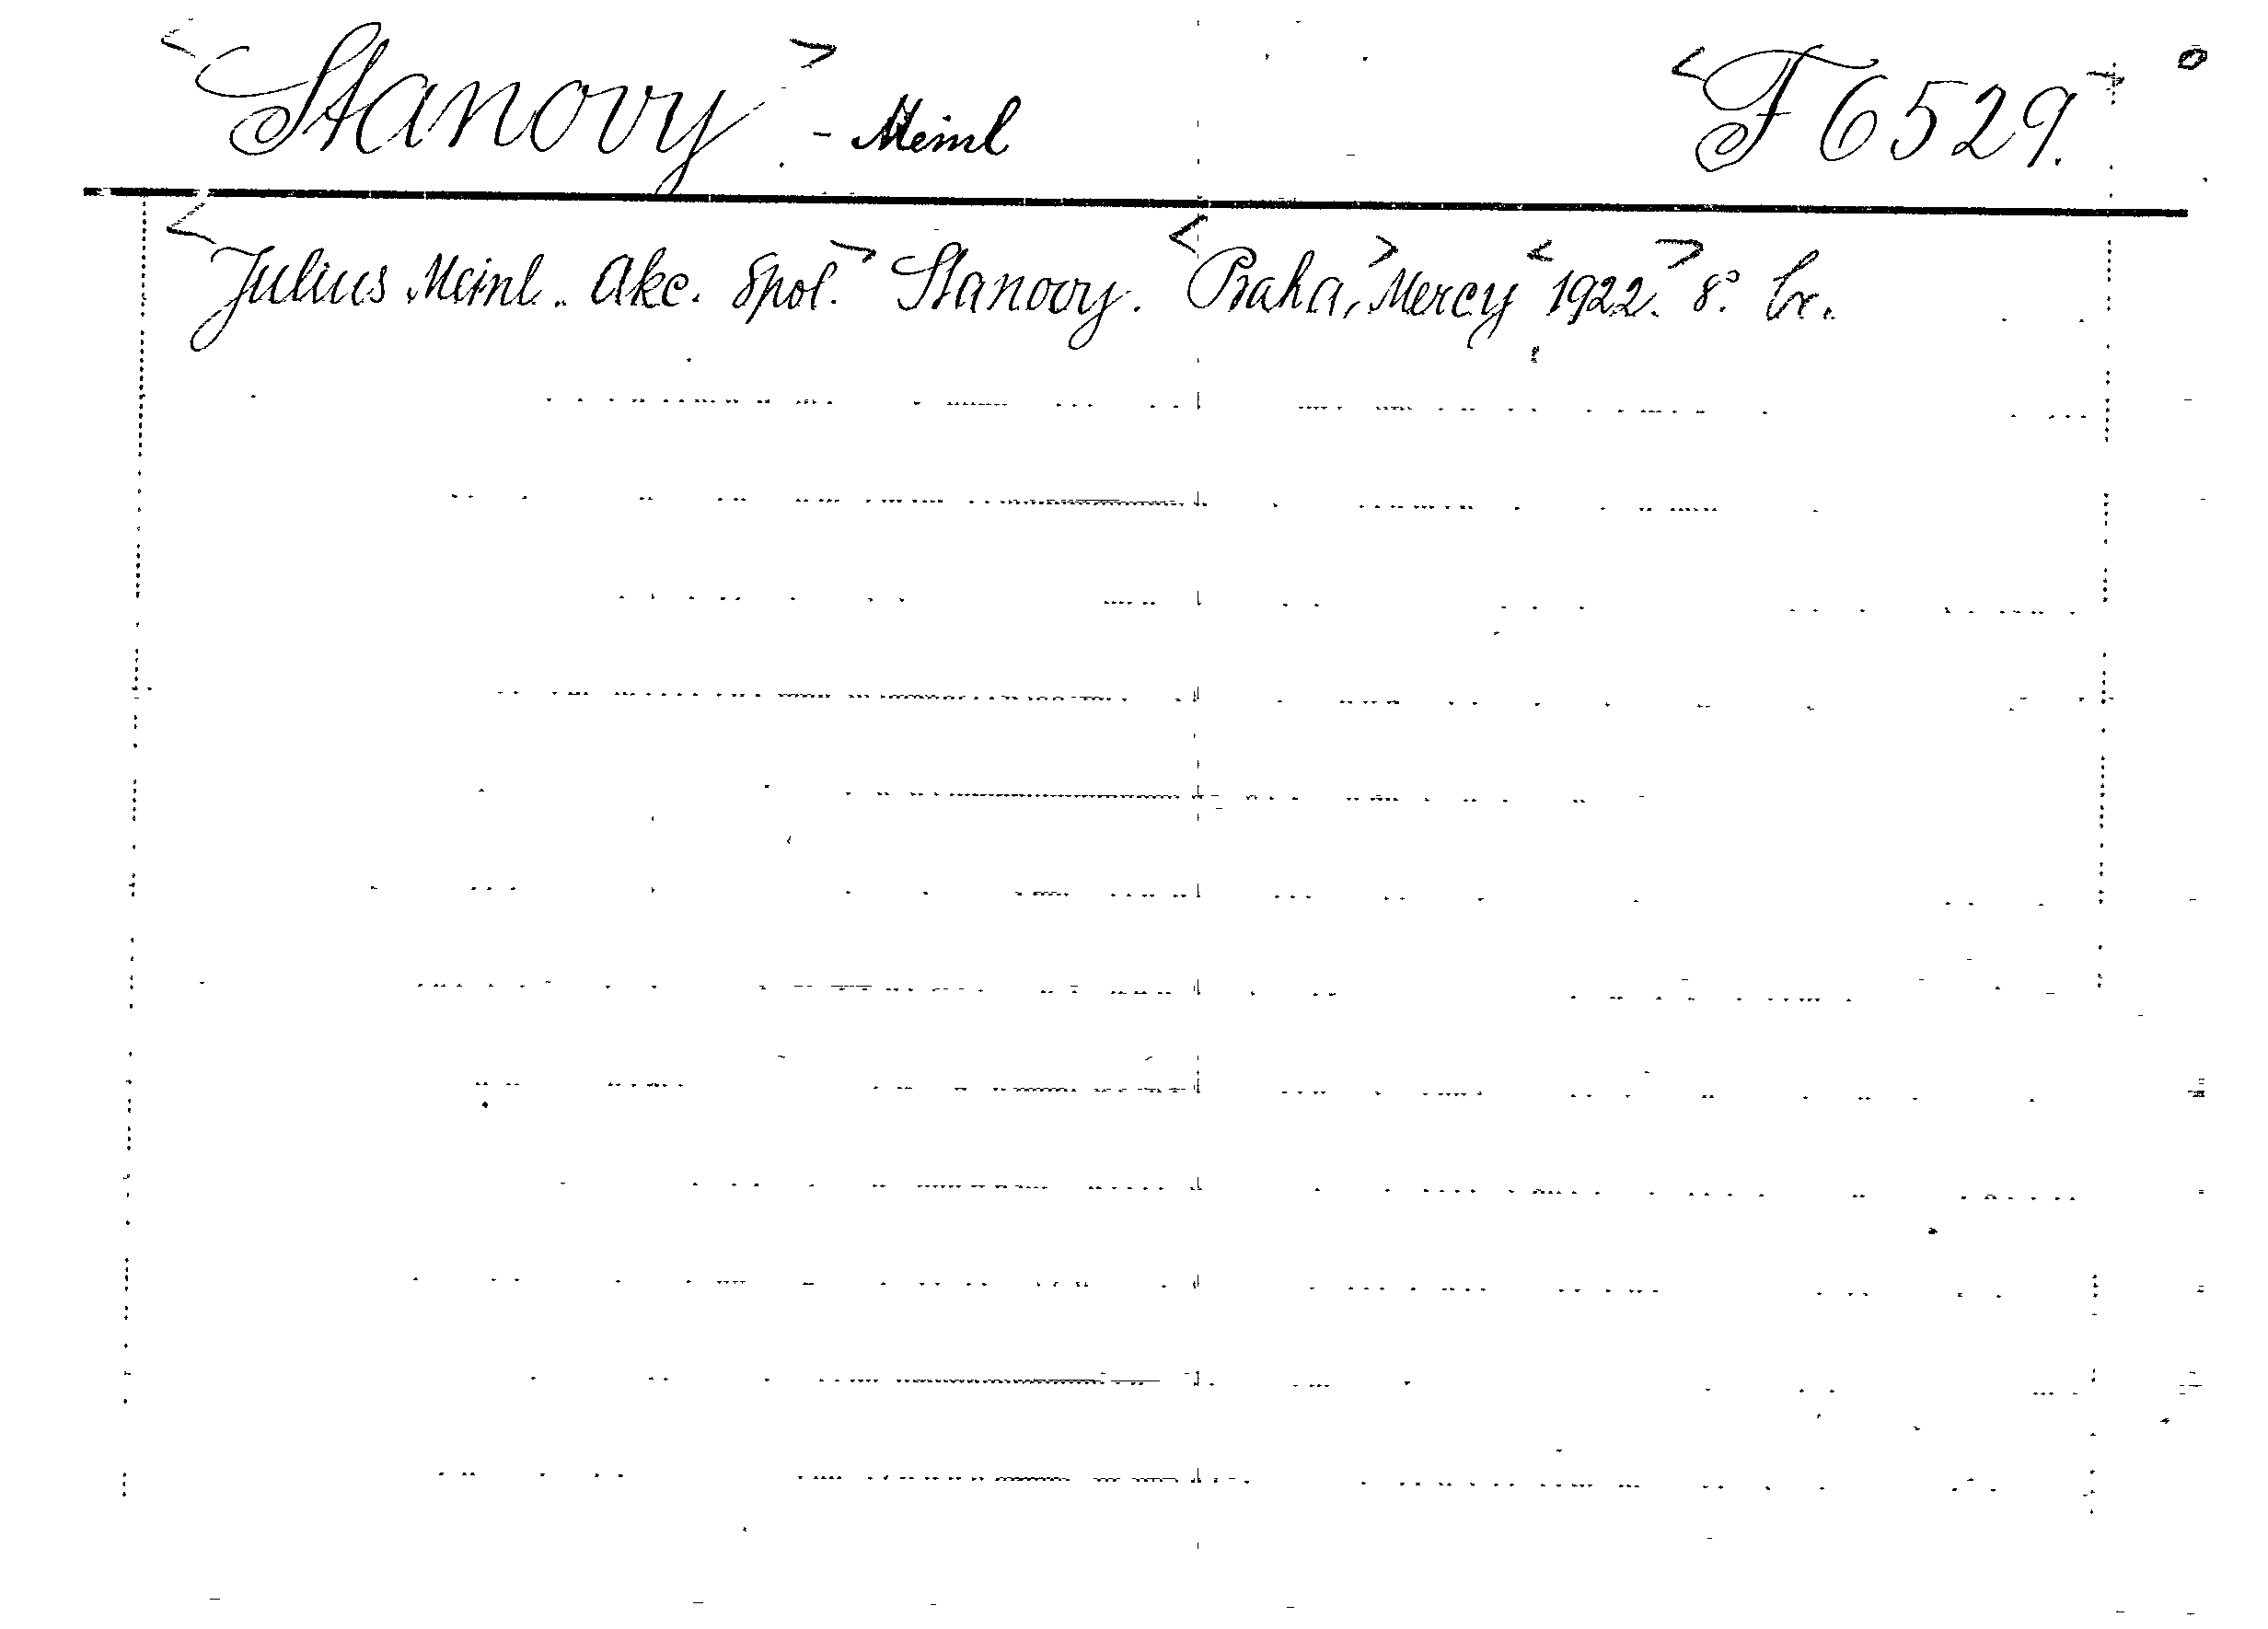 <Stanovy> - Meinl <F 6529.>
<Julius Meinl. Akc. Spol.> Stanovy. <Praha,> Mercy <1922.> 8° br.